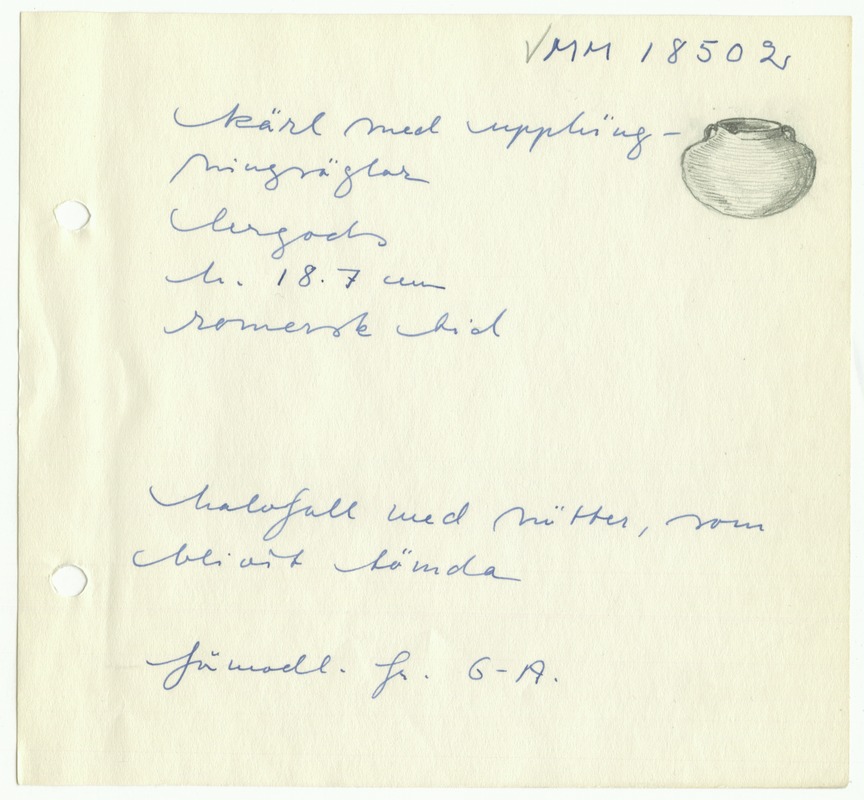 MM 18502
kärl med upphäng-
ningsöglor
lergods
h. 18.7 cm
romersk tid
halvfull med nötter, som
blivit tömda
förmodl. fr. G-A.